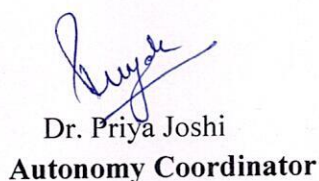 Dr. Priya Joshi
Autonomy Coordinator